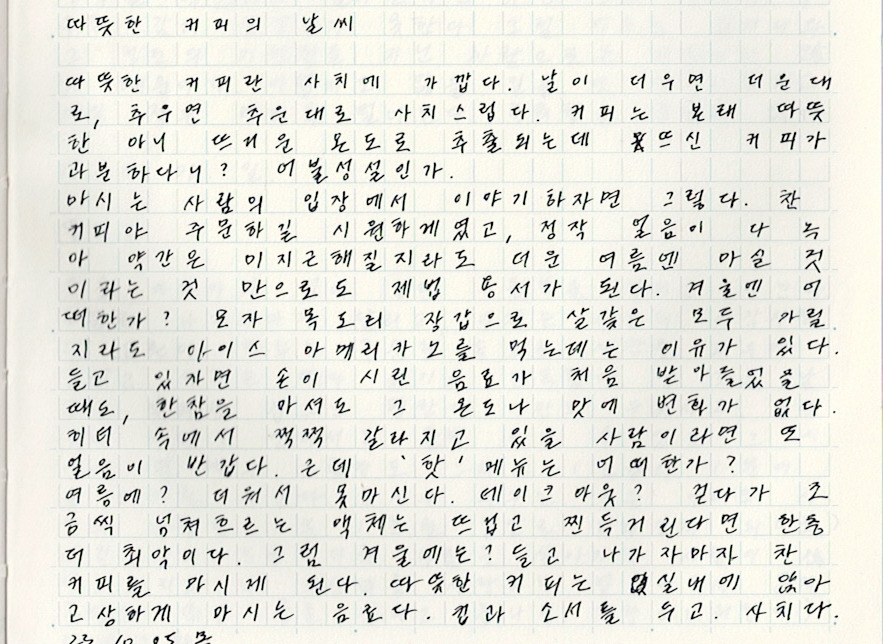 따뜻한 커피의 날씨
따뜻한 커피란 사치에 가깝다. 날이 더우면 더운대
로, 추우면 추운대로 사치스럽다. 커피는 본래 따뜻
한 아니 뜨거운 온도로 추출되는데 뜨신 커피가
과분하다니? 어불성설인가.
마시는 사람의 입장에서 이야기하자면 그렇다. 찬
커피야 주문하길 시원하게였고, 정작 얼음이 다 녹
아 약간은 미지근해질지라도 더운 여름엔 마실 것
이라는 것 만으로도 제법 용서가 된다. 겨울엔 어
떠한가? 모자 목도리 장갑으로 살갗은 모두 가릴
지라도 아이스 아메리카노를 먹는데는 이유가 있다.
들고 있자면 손이 시린 음료가 처음 받아들었을
때도, 한참을 마셔도 그 온도나 맛에 변화가 없다.
히터 속에서 쩍쩍 갈라지고 있을 사람이라면 또
얼음이 반갑다. 근데 '핫' 메뉴는 어떠한가?
여름에? 더워서 못마신다. 테이크아웃? 걷다가 조
금씩 넘쳐흐르는 액체는 뜨겁고 찐득거린다면 한층
더 최악이다. 그럼 겨울에는? 들고 나가자마자 찬
커피를 마시게 된다. 따뜻한 커피는 실내에 앉아
고상하게 마시는 음료다. 컵과 소서를 두고. 사치다.